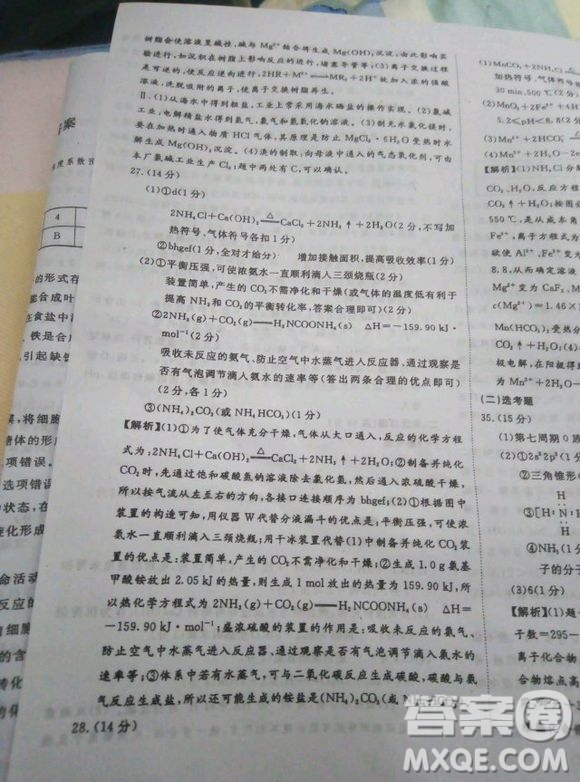 树脂会使溶液呈碱性,碱与Mg²⁺结合将生成Mg(OH)₂沉淀,由此影响实
验进行,如沉积在树脂影响反应的进行,堵塞导管等;(3)离子交换过程
是可逆的,使反应逆向进行,2HR+M²⁺⇌MR₂+2H⁺故加入浓的强酸
溶液,洗脱吸附的离子,使离子交换树脂再生。
Ⅱ.(1)从海水中得到粗盐,工业上常采用海水晒盐的操作实现。(2)氯碱
工业,电解精盐水得到氯气,氢气和氢氧化钠溶液。(3)制无水氯化镁时,
要在加热时通入物质HCl气体,其原因是防止MgCl₂·6H₂O受热时水
解生成Mg(OH)₂沉淀。(4)溴的制取,向母液中通入的气态氧化剂,可由
本厂氯碱工业生产Cl₂;题中两处有C,可以循环利用。
27.(14分)
(1)①d(1分)
2NH₄Cl+Ca(OH)₂=△=CaCl₂+2NH₃↑+2H₂O(2分,不写加
热符号、气体符号各扣1分)
②bhgef(1分,全对才给分) 增加接触面积,提高吸收效率(1分)
(2)①平衡压强,可使浓氨水一直顺利滴入三颈烧瓶(2分)
装置简单,产生的CO₂不需净化和干燥(或气体的温度低有利于
提高NH₃和CO₂的平衡转化率,答案合理即可)(2分)
②2NH₃(g)+CO₂(g)⇌H₂NCOONH₄(s) ΔH=−159.90 kJ·
mol⁻¹(2分)
吸收未反应的氨气、防止空气中水蒸气进入反应器、通过观察是
否有气泡调节滴入氨水的速率等(答出两条合理的优点即可)
(2分,各1分)
③(NH₄)₂CO₃(或NH₄HCO₃)(1分)
【解析】(1)①为了使气体充分干燥,气体从大口通入,反应的化学方程
式为:2NH₄Cl+Ca(OH)₂=△=CaCl₂+2NH₃↑+2H₂O;②制备并纯化
CO₂时,先通过饱和碳酸氢钠溶液除去氯化氢,然后通入浓硫酸干燥,
所以按气流从左至右的方向,各接口连接顺序为bhgef;(2)①根据图中
装置的构造可知,用仪器W代替分液漏斗的优点是:平衡压强,可使浓氨
水一直顺利滴入三颈烧瓶;用干冰装置代替(1)中制备并纯化CO₂装
置的优点是:装置简单,产生的CO₂不需净化和干燥;②生成1.0 g氨基
甲酸铵放出2.05 kJ的热量,则生成1 mol放出的热量为159.90 kJ,所
以热化学方程式为2NH₃(g)+CO₂(g)⇌H₂NCOONH₄(s) ΔH=
−159.90 kJ·mol⁻¹;盛浓硫酸的装置的作用是:吸收未反应的氨气、
防止空气中水蒸气进入反应器、通过观察是否有气泡调节滴入氨水的
速率等;③体系中若有水蒸气,可与二氧化碳反应生成碳酸,碳酸与氨
气反应生成盐,所以还可能生成的铵盐是(NH₄)₂CO₃(或
28.(14分)
答案
4
B
的形式存
能合成叶
在食盐中
铁是合成
引起缺
误,将细胞
糖体的形成
项错误。
选项错误
种状态,在
速化形成
命活动
反应的
和细胞
的含
转化
转化
(1)MnCO₃+2NH₄C
加热符号、气体符号各
30 min,500℃(2分)
(2)MnO₂+2Fe²⁺+4H
5.2≤pH<8.8(2分)
(3)Mn²⁺+2HCO₃
(4)Mn²⁺−2e⁻+2H
CO₂,反应方程
550℃,是从成本角
Fe³⁺,离子方程式为
欲使Al³⁺、Fe³⁺
8.8,从而确定溶液
Mg²⁺变为CaF₂、
c(Mg²⁺)=1.46×1
Mn(HCO₃)₂受热
极电解,在阳极得
为Mn²⁺−2e⁻+2H
(二)选考题
35.(15分)
(1)第七周期0族
(2)①三角锥形(
③[H:N:H
H
④NH₃(1分
子的分子
(3)6(1分)
【解析】(1)题
子数=295−
离子化合物
合物熔点高
答案圈
MXQE.COM